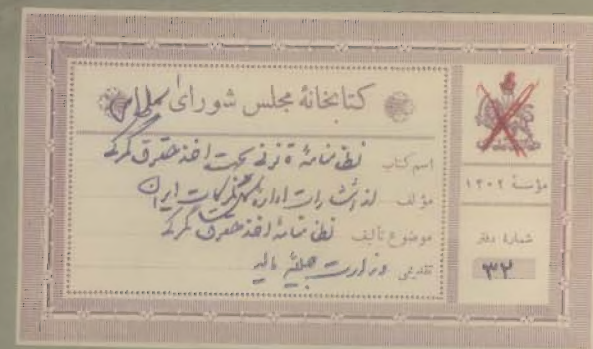 کتابخانهٔ مجلس شورای ملی
اسم کتاب نظامنامهٔ قانونی بجهت اخذ حقوق گمرکی
مؤلف از انتشارات ادارهٔ گمرکات ایران
موضوع تألیف نظامنامهٔ اخذ حقوق گمرکی
تقدیمی وزارت جلیلهٔ مالیه
مؤسسهٔ ۱۳۰۲
شمارهٔ دفتر
۳۲